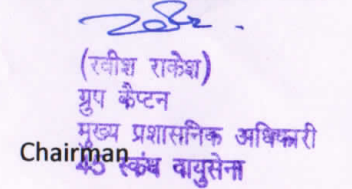 (रवीश राकेश)
ग्रुप कैप्टन
मुख्य प्रशासनिक अधिकारी
Chairman
45 स्कंध वायुसेना